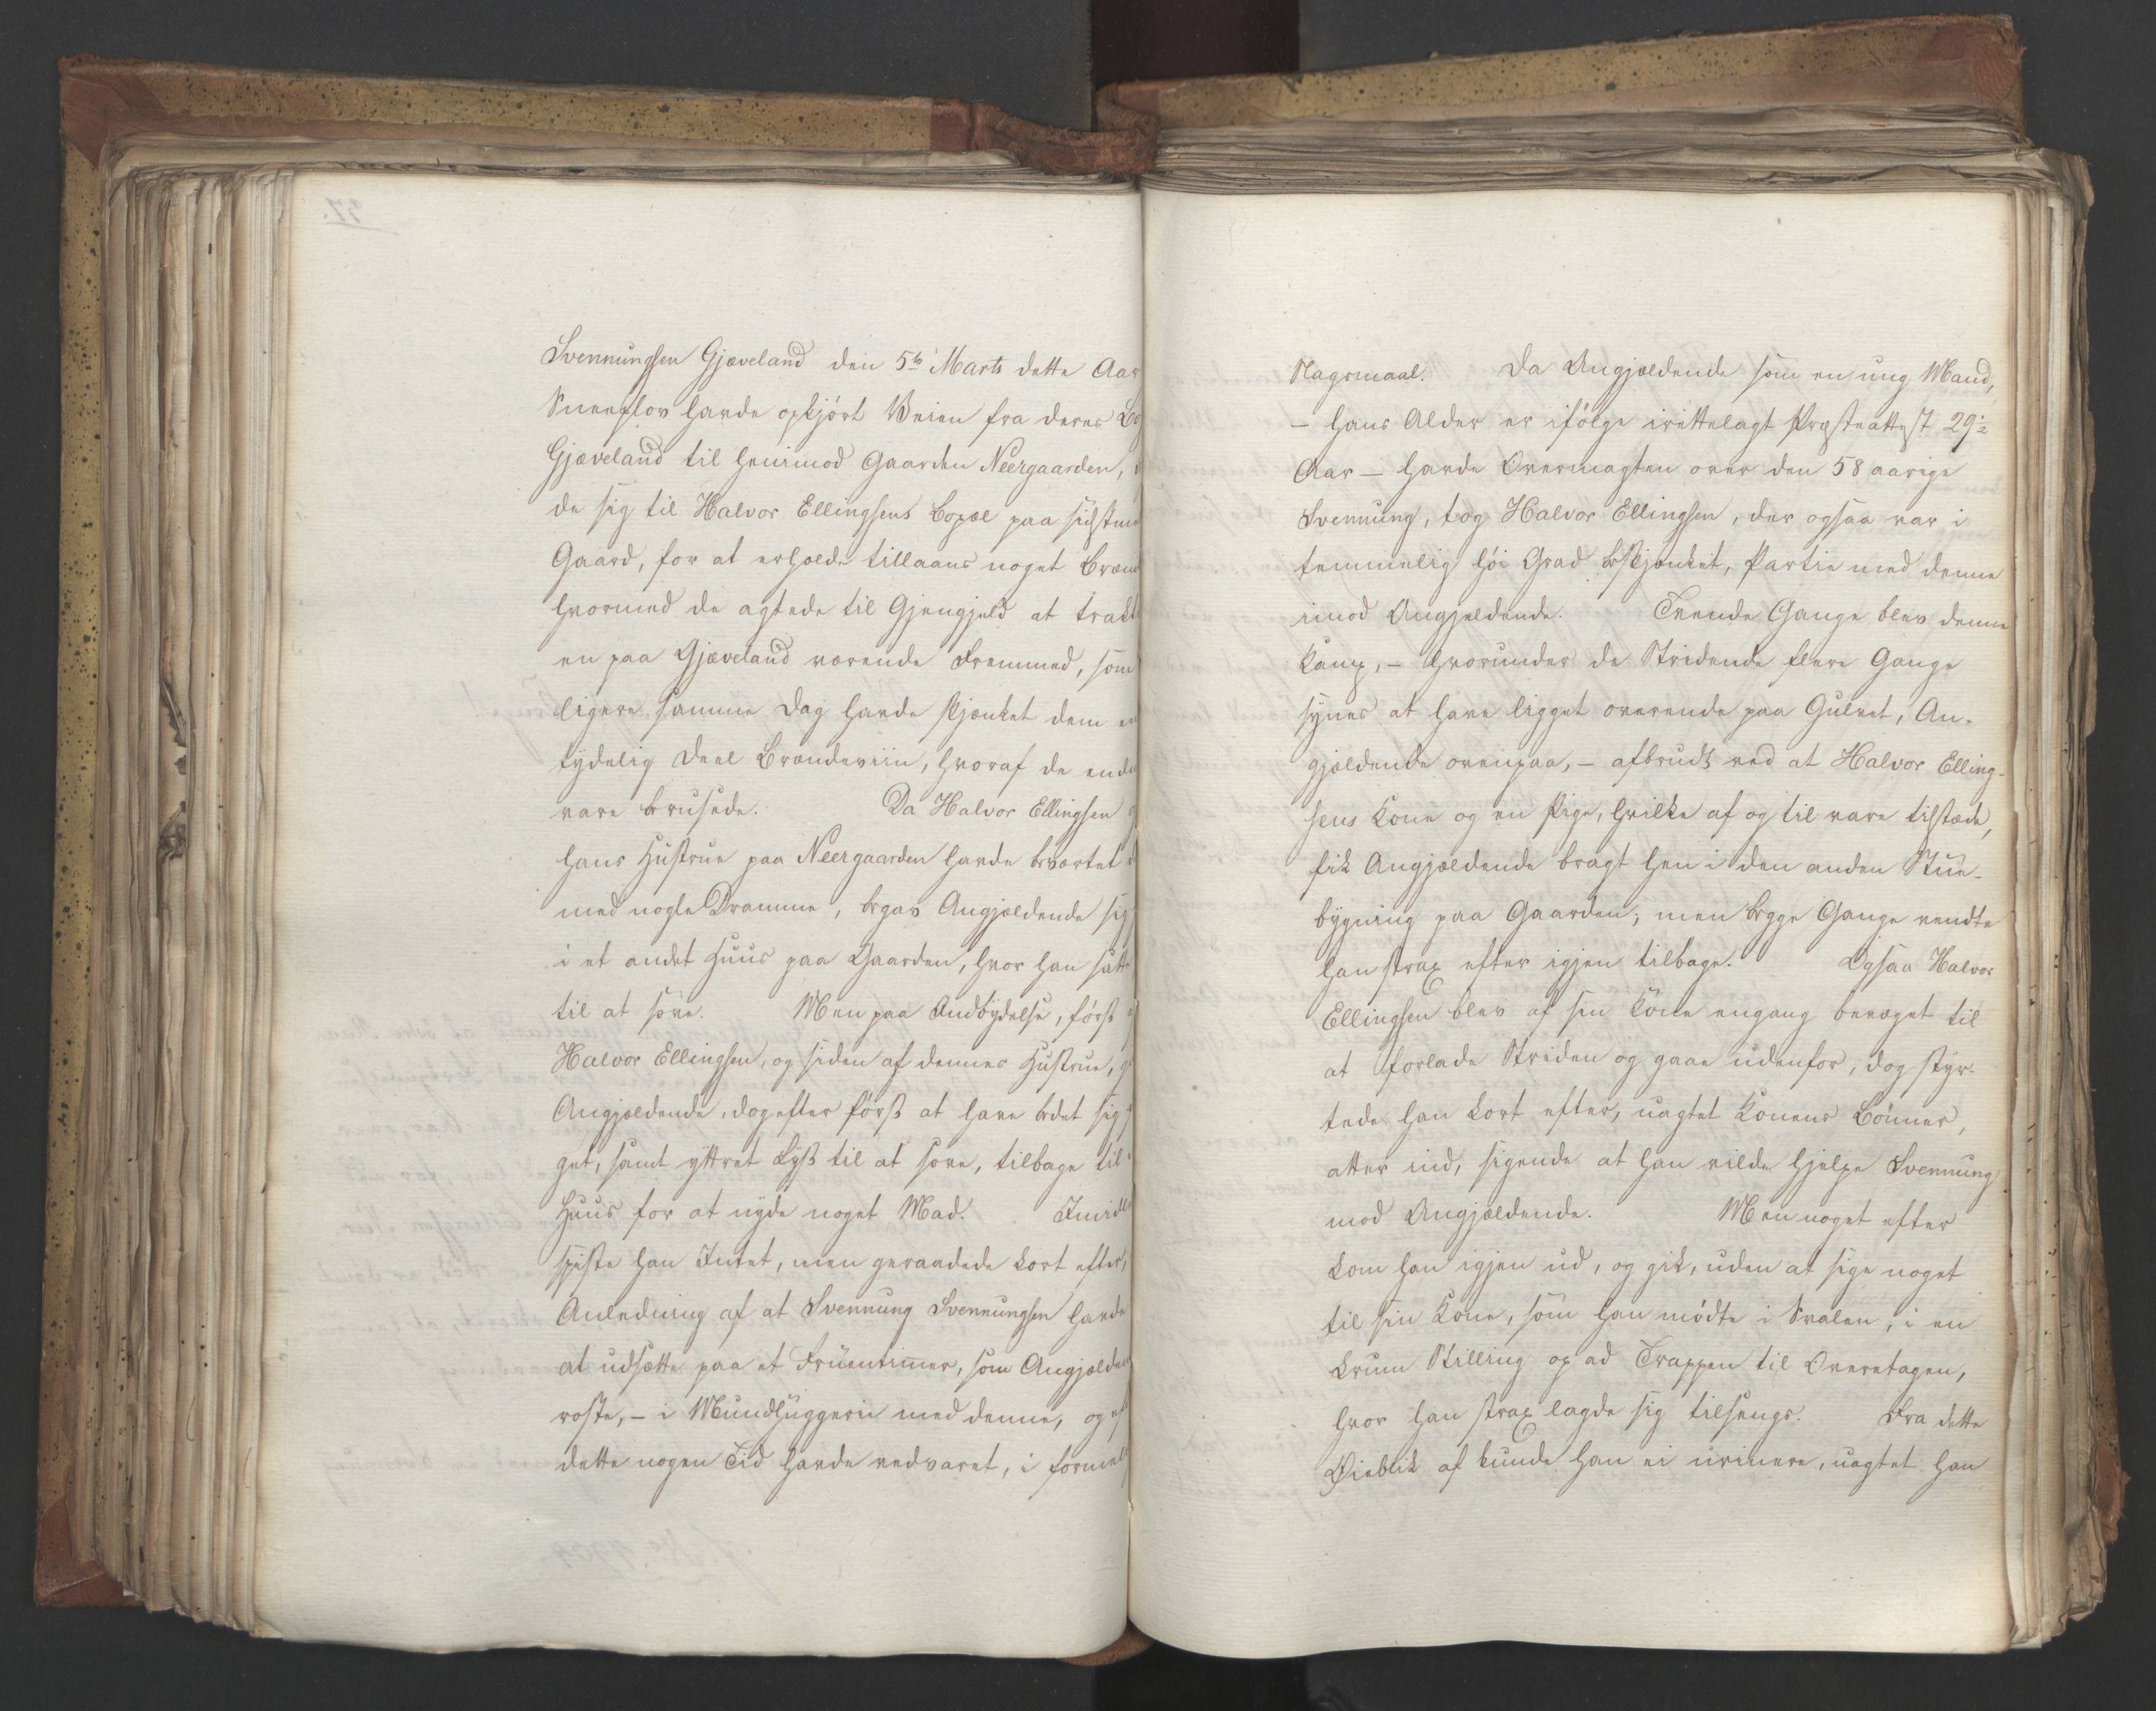 Svennungsen Gjæveland den 5te Marts dette Aar
Sneeplov havde opkjørt Veien fra deres
Gjæveland til henimod Gaarden Neergaarden,
de sig til Halvor Ellingsens Bopæl paa sidstnæ
Gaard, for at erholde tillaans noget Bræn
hvormed de agtede til Gjengjeld at trakt
en paa Gjæveland værende Fremmed, som
ligere samme Dag havde skjænket dem en
tydelig Deel Brændeviin, hvoraf de enda
vare brusede. Da Halvor Ellingsen
hans Hustrue paa Neergaarden havde beværtet
med nogle Dramme, begav Angjældende sig
i et andet Huus paa Gaarden, hvor han satte
til at sove. Men paa Indbydelse, først
Halvor Ellingsen, og siden af dennes Hustrue,
Angjældende, dog efter først at have bedet sig
get, samt yttret Lyst til at sove, tilbage til
Huus for at nyde noget Mad. Imidle
spiste han Intet, men geraadede kort efter,
Anledning af at Svennung Svennungsen havde
at udsætte paa et Früentimer, som Angjælden
roste, – i Mundhuggerie med denne, og ef
dette nogen Tid havde vedvaret, i formel
Slagsmaal. Da Angjældende som en ung Mand,
– hans Alder er ifølge irettelagt Præsteattest 29½
Aar – havde Overmagten over den 58 aarige
Svennung, tog Halvor Ellingsen, der ogsaa var i
temmelig høi Grad beskjænket, Partie med denne
imod Angjeldende. Tvende Gange blev denne
Kamp, – hvorunder de Stridende flere Gange
synes at have ligget overende paa Gulvet, An-
gjældende ovenpaa, – afbrudt ved at Halvor Elling-
sens Kone og en Pige, hvilke af og til vare tilstæde,
fik Angjældende bragt hen i den anden Stue-
bygning paa Gaarden; men begge Gange vendte
han strax efter igjen tilbage. Ogsaa Halvor
Ellingsen blev af sin Kone engang bevæget til
at forlade Striden og gaae udenfor, dog styr-
tede han kort efter, uagtet Konens Bønner,
atter ind, sigende at han vilde hjelpe Svennung
mod Angjældende. Men noget efter
kom han igjen ud, og gik, uden at sige noget
til sin Kone, som han mødte i Svalen, i en
krum Stilling op ad Trappen til Overetagen,
hvor han strax lagde sig tilsengs. Fra dette
Øieblik af kunde han ei urinere, uagtet han